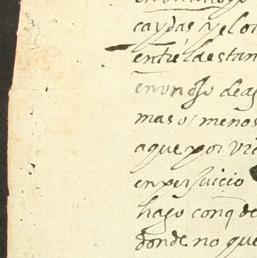 caydas y el o
entre la estan
en un oJo de a
mas o menos
a que por vi
en perJuicio
hago con q de
donde no que